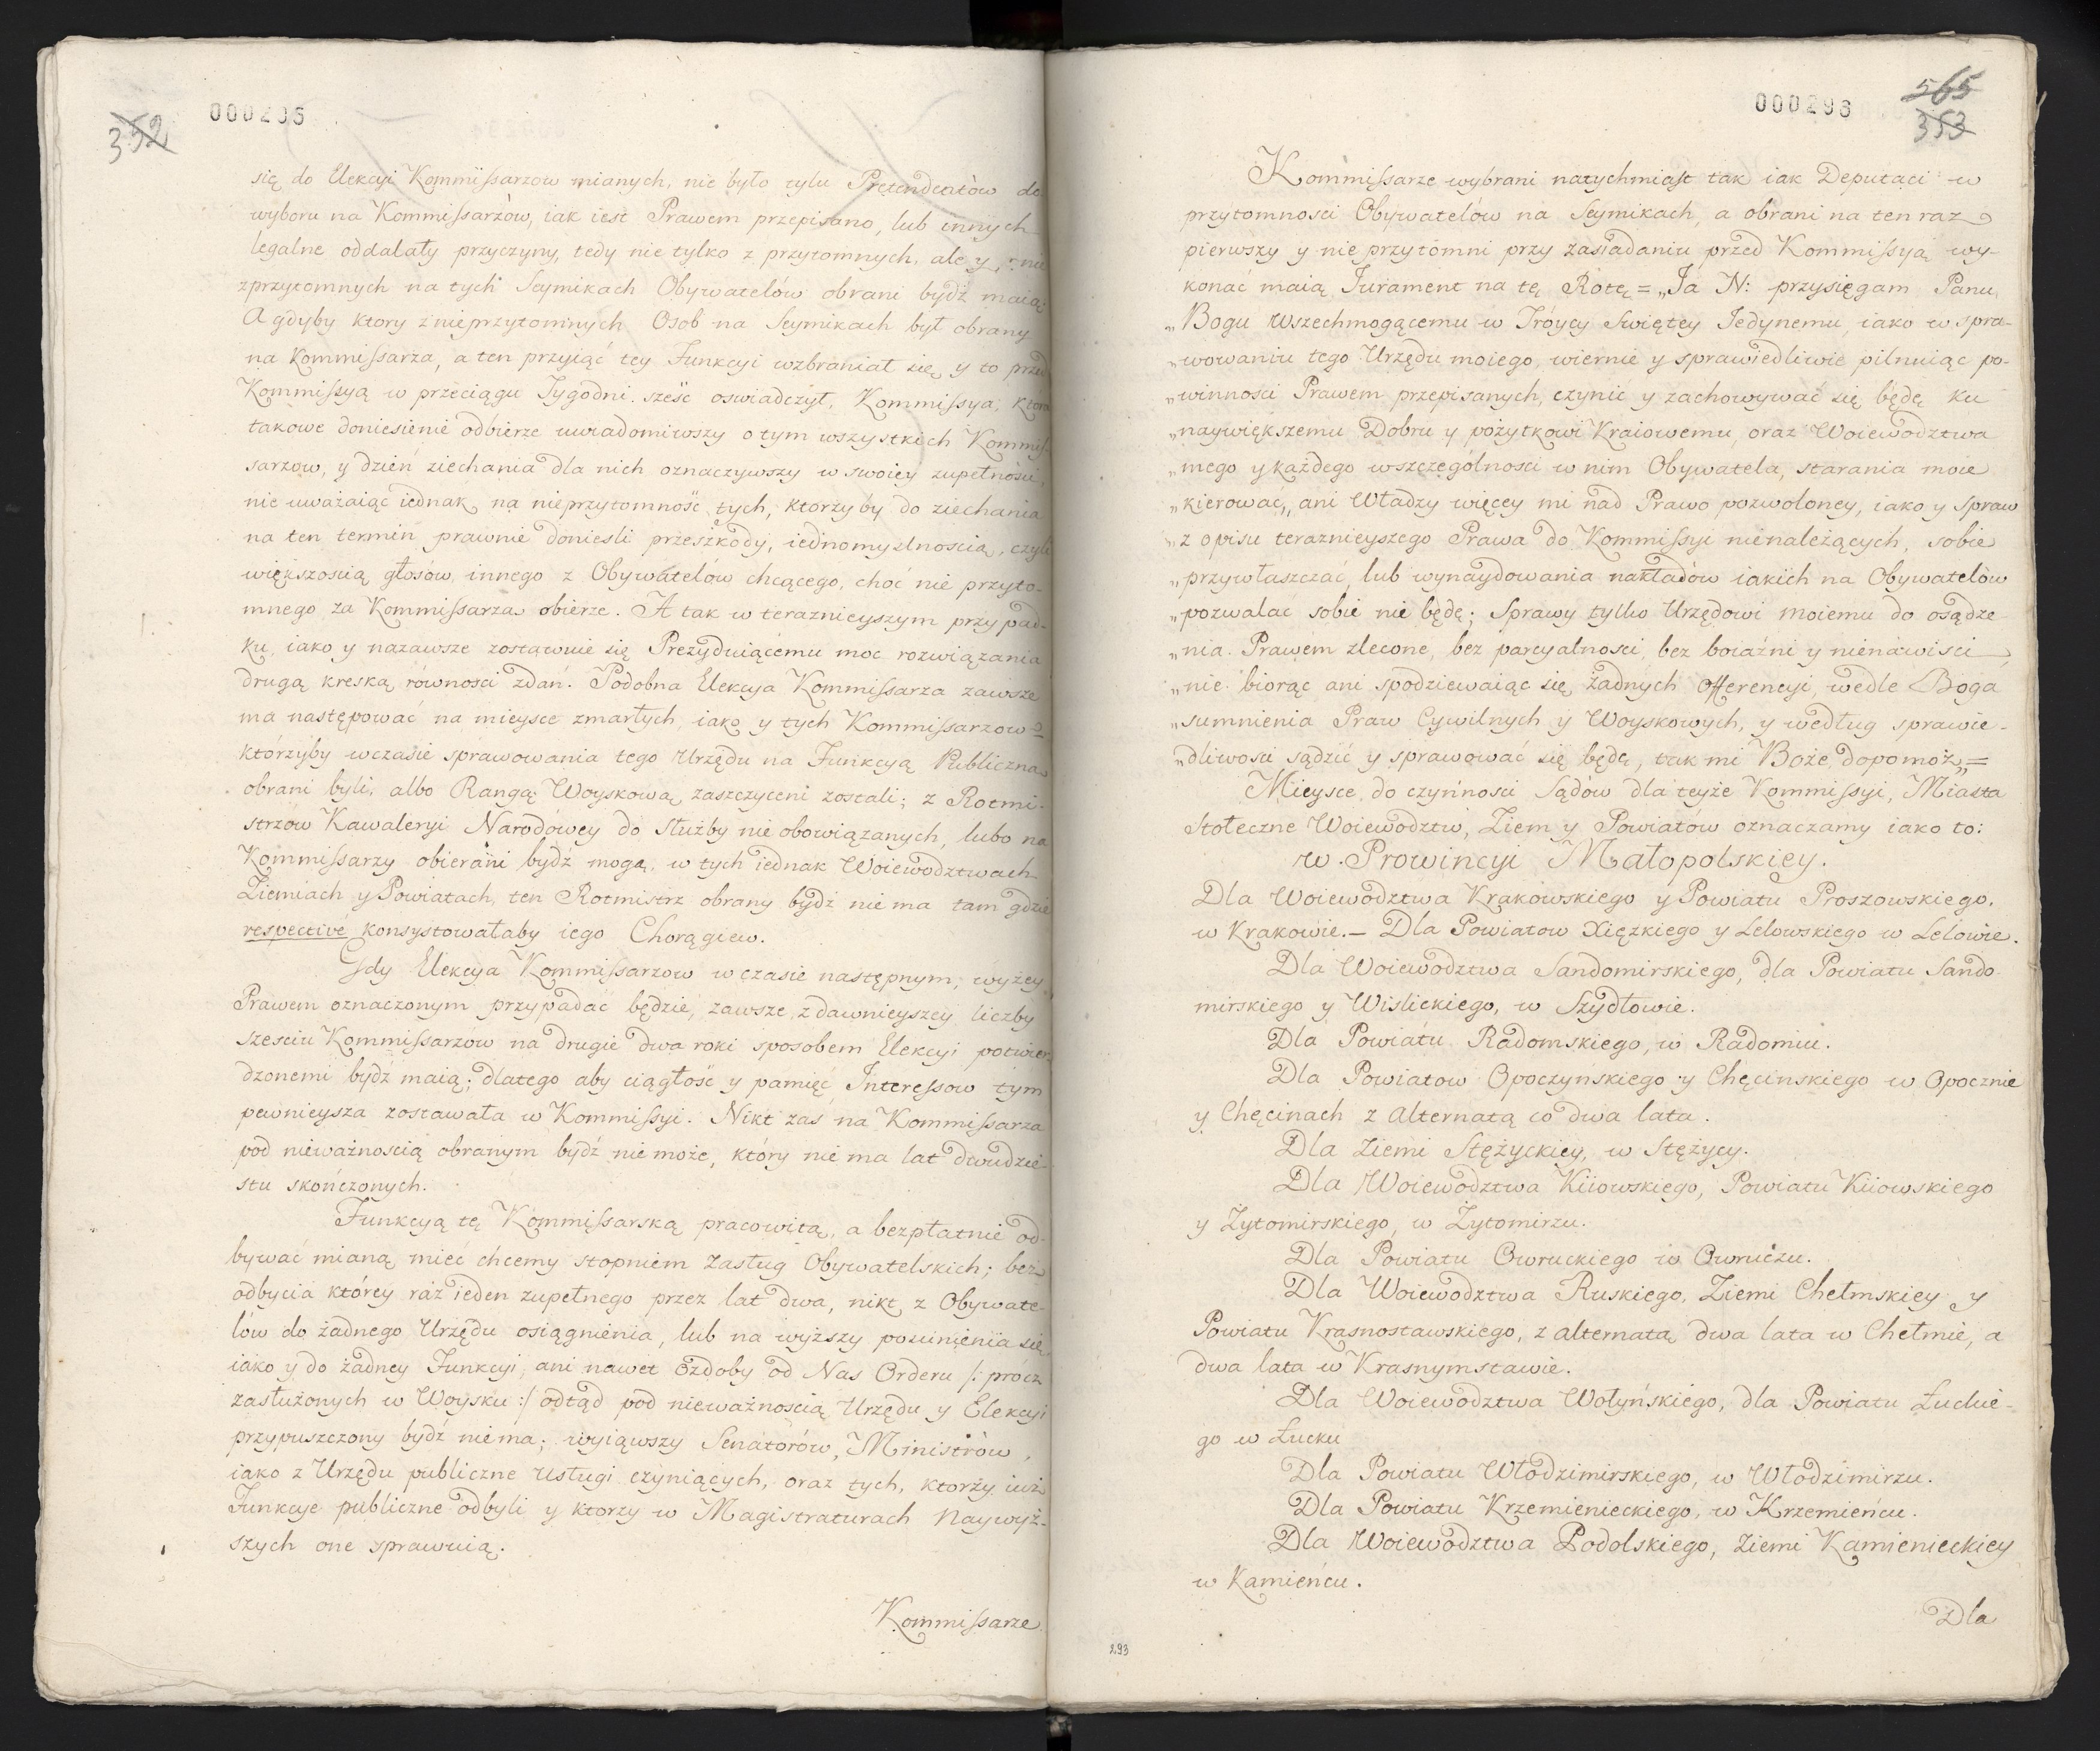 352
000295
się do Elekcyi Kommissarzow mianych, nie było tylu Pretendentòw do
wyboru na Kommissarzòw, iak iest Prawem przepisano, lub innych
legalne oddalały przyczyny, tedy nie tylko z przytomnych, ale y z nie
zprzytomnych na tych Seymikach Obywatelów obrani bydź maią;
A gdyby ktory z nieprzytomnych Osob na Seymikach był obrany
na Kommissarza, a ten przyiąć tey Funkcyi wzbraniał się, y to przed
Kommissyą w przeciągu Tygodni sześć oswiadczył, Kommissya, ktora
takowe doniesienie odbierze uwiadomiwszy o tym wszystkich Kommis-
sarzow, y dzień ziechania dla nich oznaczywszy w swoiey zupełności,
nie uważaiąc iednak na nieprzytomność tych, ktorzyby do ziechania
na ten termin prawnie doniesli przeszkody, iednomyslnoscią, czyli
większoscią głosów, innego z Obywatelów chcącego, choć nie przyto-
mnego za Kommissarza obierze. A tak w teraznieyszym przypad-
ku, iako y nazawsze zostawuie się Prezyduiącemu moc rozwiązania
drugą kreską równosci zdań. Podobna Elekcya Kommissarza zawsze
ma następować na mieysce zmarłych, iako y tych Kommissarzow
którzyby wczasie sprawowania tego Urzędu na Funkcyą Publiczną
obrani byli, albo Rangą Woyskową zaszczyceni zostali; z Rotmi-
strzów Kawaleryi Narodowey do służby nie obowiązanych, lubo na
Kommissarzy obierani bydź mogą, w tych iednak Woiewodztwach
Ziemiach y Powiatach, ten Rotmistrz obrany bydź nie ma tam gdzie
respectivé konsystowałaby iego Chorągiew.
Gdy Elekcya Kommissarzow w czasie następnym, wyżey
Prawem oznaczonym przypadać będzie, zawsze z dawnieyszey liczby
szesciu Kommissarzów na drugie dwa roki sposobem Elekcyi potwier-
dzonemi bydź maią; dlatego aby ciągłość y pamięć Interessow tym
pewnieysza zostawała w Kommissyi. Nikt zas na Kommissarza
pod nieważnoscią obranym bydź nie może, który nie ma lat dwudzie-
stu skończonych.
Funkcyą tę Kommissarską pracowitą, a bezpłatnie od-
bywać mianą mieć chcemy stopniem Zasług Obywatelskich; bez
odbycia którey raz ieden zupełnego przez lat dwa, nikt z Obywate-
lów do żadnego Urzędu osiągnienia, lub na wyższy posunięnia się,
iako y do żadney Funkcyi, ani nawet ozdoby od Nas Orderu /: prócz
zasłużonych w Woysku :/ odtąd pod nieważnoscią Urzędu y Elekcyi
przypuszczony bydź niema; wyiąwszy Senatórów, Ministrów,
iako z Urzędu publiczne usługi czyniących, oraz tych, ktorzy iuż
Funkcye publiczne odbyli y ktorzy w Magistraturach Naywyż-
szych one sprawuią.
Kommissarze
000296
565
353
Kommissarze wybrani natychmiast tak iak Deputaci w
przytomnosci Obywatelów na Seymikach, a obrani na ten raz
pierwszy y nie przytomni przy zasiadaniu przed Kommissyą wy-
konać maią Jurament na tę Rotę = „Ja N: przysięgam Panu
„Bogu Wszechmogącemu w Tróycy Swiętey Jedynemu, iako w spra-
„wowaniu tego Urzędu moiego, wiernie y sprawiedliwie pilnuiąc po-
„winnosci Prawem przepisanych, czynić y zachowywać się będę ku
„naywiększemu Dobru y pożytkowi Kraiowemu, oraz Woiewodztwa
„mego y każdego wszczególnosci w nim Obywatela, starania moie
„kierować„, ani Władzy więcey mi nad Prawo pozwoloney, iako y spraw
„z opisu teraznieyszego Prawa do Kommissyi nienależących, sobie
„przywłaszczać, lub wynaydowania nakładów iakich na Obywatelòw
„pozwalać sobie nie będę; Sprawy tylko Urzędowi moiemu do osądze
„nia Prawem zlecone, bez parcyalnosci, bez boiaźni y nienawisci
„nie biorąc ani spodziewaiąc się żadnych offerencyi, wedle Boga
„sumnienia Praw Cywilnych y Woyskowych, y według sprawie-
„dliwosci sądzić y sprawować się będę, tak mi Boże dopomóż„=
Mieysce do czynności Sądów dla teyże Kommissyi, Miasta
stołeczne Woiewodztw, Ziem y Powiatów oznaczamy iako to:
w. Prowincyi Małopolskiey.
Dla Woiewodztwa Krakowskiego y Powiatu Proszowskiego,
w Krakowie.– Dla Powiatow Xięzkiego y Lelowskiego w Lelowie.
Dla Woiewodztwa Sandomirskiego, dla Powiatu Sando-
mirskiego y Wislickiego, w Szydłowie.
Dla Powiatu Radomskiego, w Radomiu.
Dla Powiatow Opoczynskiego y Chęcinskiego w Opocznie
y Chęcinach z alternatą co dwa lata.
Dla Ziemi Stężyckiey, w Stężycy.
Dla Woiewodztwa Kiiowskiego, Powiatu Kiiowskiego
y Zytomirskiego, w Zytomirzu.
Dla Powiatu Owruckiego w Owruczu.
Dla Woiewodztwa Ruskiego, Ziemi Chełmskiey y
Powiatu Krasnostawskiego, z alternatą dwa lata w Chełmie, a
dwa lata w Krasnymstawie.
Dla Woiewodztwa Wołyńskiego, dla Powiatu Łuckie-
go w Łucku
Dla Powiatu Włodzimirskiego, w Włodzimirzu.
Dla Powiatu Krzemienieckiego, w Krzemieńcu.
Dla Woiewodztwa Podolskiego, Ziemi Kamienieckiey
w Kamieńcu.
Dla
293